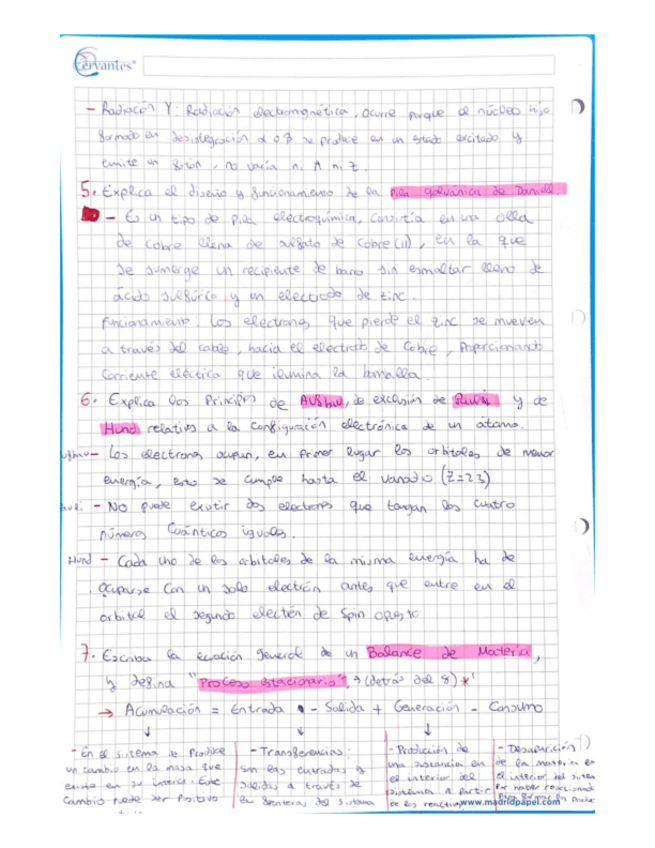 Cervantes®
- Radiación γ: Radiación electromagnética, ocurre porque el núcleo hijo
formado en desintegración α o β se produce en un estado excitado y
emite un fotón, no varía ni A ni Z.
5. Explica el diseño y funcionamiento de la pila galvánica de Daniell.
- Es un tipo de pila electroquímica, consistía en una olla
de cobre llena de sulfato de cobre (II), en la que
se sumerge un recipiente de barro sin esmaltar lleno de
ácido sulfúrico y un electrodo de zinc.
Funcionamiento. Los electrones que pierde el zinc se mueven
a través del cable, hacia el electrodo de cobre, proporcionando
corriente eléctrica que ilumina la bombilla.
6. Explica los Principios de Aufbau, de exclusión de Pauli y de
Hund relativos a la configuración electrónica de un átomo.
- Los electrones ocupan, en primer lugar los orbitales de menor
energía, esto se cumple hasta el vanadio (Z=23)
- No puede existir dos electrones que tengan los cuatro
números cuánticos iguales.
Hund - Cada uno de los orbitales de la misma energía ha de
ocuparse con un solo electrón antes que entre en el
orbital el segundo electrón de spin opuesto
7. Escriba la ecuación general de un Balance de Materia,
y defina "Proceso estacionario", → (detrás del 8) *'
→ Acumulación = Entrada - Salida + Generación - Consumo
- En el sistema se produce
un cambio en la masa que
existe en su interior. Este
cambio puede ser positivo
- Transferencias:
son las entradas y
salidas a través de
las fronteras del sistema
- Producción de
una sustancia en
el interior del
sistema a partir
de los reactivos
- Desaparición
de la materia en
el interior del sistema
por haber reaccionado
para formar los
www.madridpapel.com